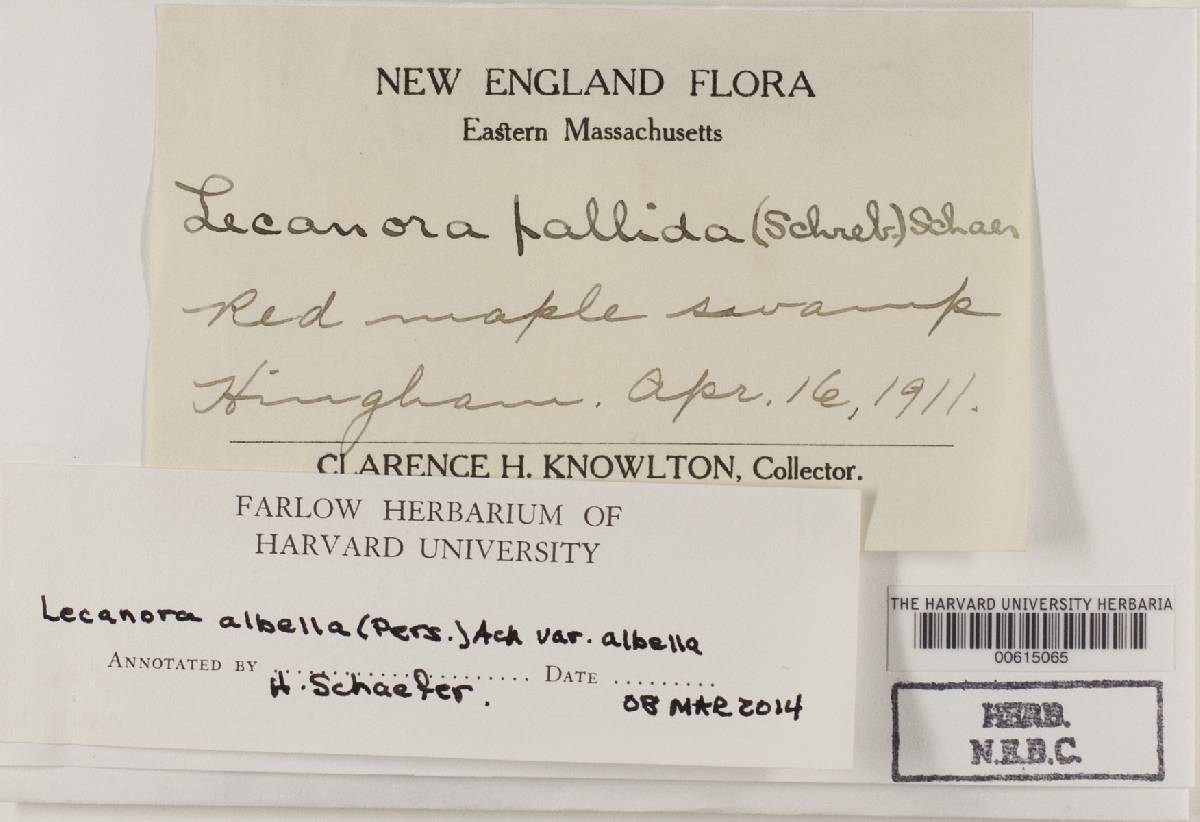 NEW ENGLAND FLORA
Eastern Massachusetts
Lecanora pallida (Schreb.) Schaer
Red maple swamp
Hingham. Apr. 16, 1911.
CLARENCE H. KNOWLTON, Collector.
FARLOW HERBARIUM OF
HARVARD UNIVERSITY
Lecanora albella (Pers.) Ach var. albella
ANNOTATED BY .................... DATE .........
H. Schaefer. 08 MAR 2014
THE HARVARD UNIVERSITY HERBARIA
00615065
HERB.
N.E.B.C.